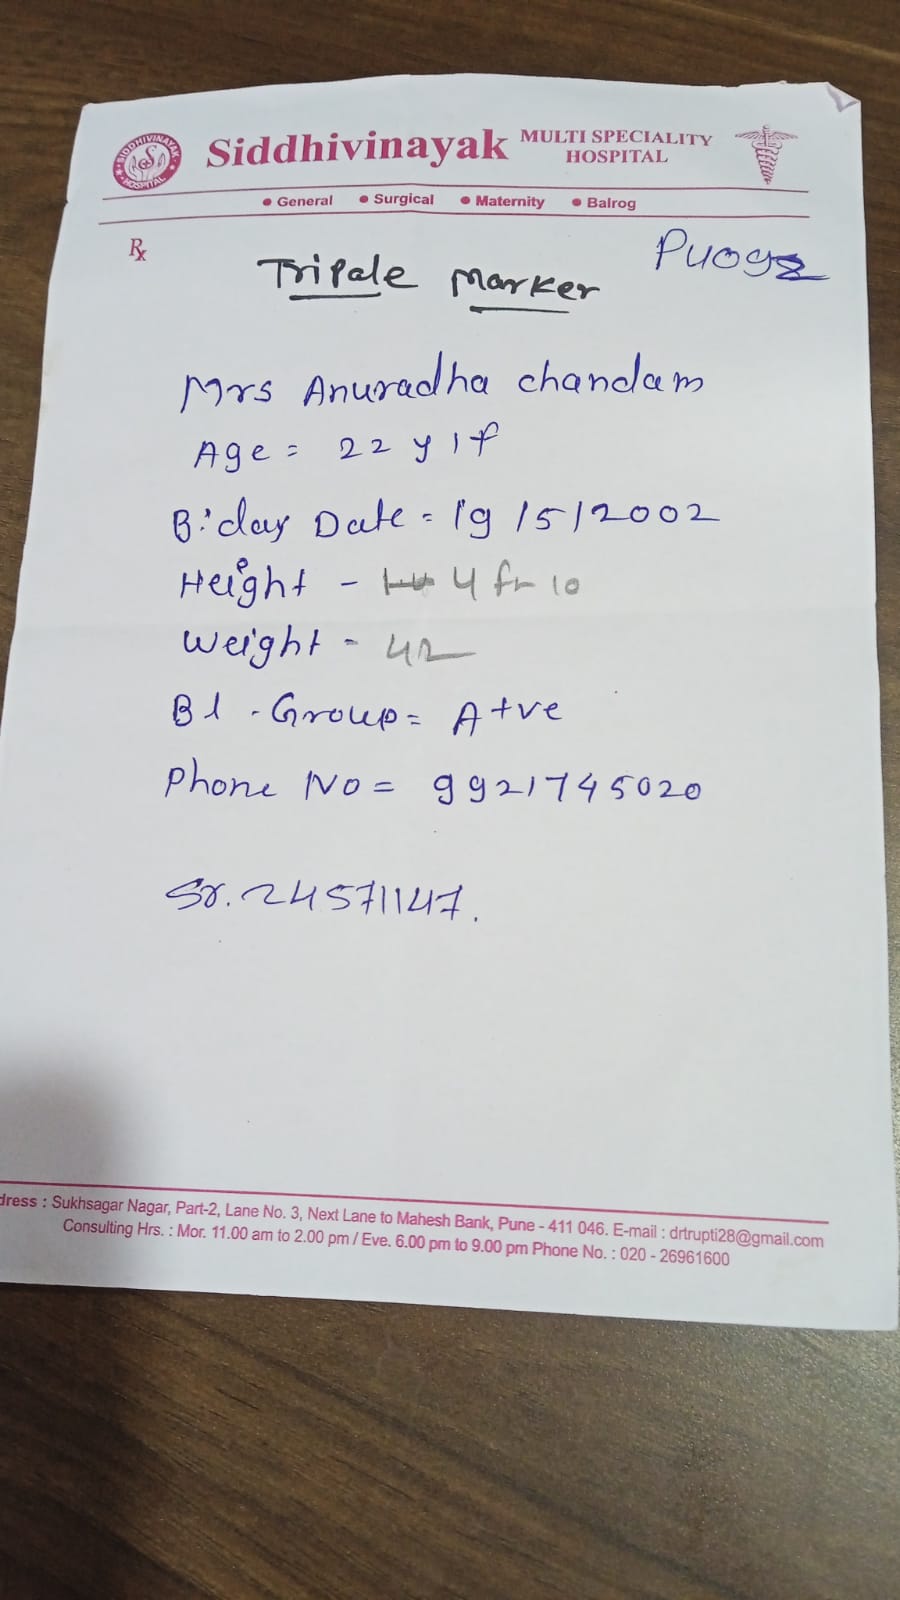 SIDDHIVINAYAK HOSPITAL
Siddhivinayak MULTI SPECIALITY HOSPITAL
• General • Surgical • Maternity • Balrog
Rx
PU092
Tripale Marker
Mrs Anuradha chandam
Age = 22 y / f
B'day Date = 19/5/2002
Height - 4 ft 10
Weight - 42
Bl. Group = A+ve
Phone No = 9921745020
Sr. 24571147.
dress : Sukhsagar Nagar, Part-2, Lane No. 3, Next Lane to Mahesh Bank, Pune - 411 046. E-mail : drtrupti28@gmail.com
Consulting Hrs. : Mor. 11.00 am to 2.00 pm / Eve. 6.00 pm to 9.00 pm Phone No. : 020 - 26961600